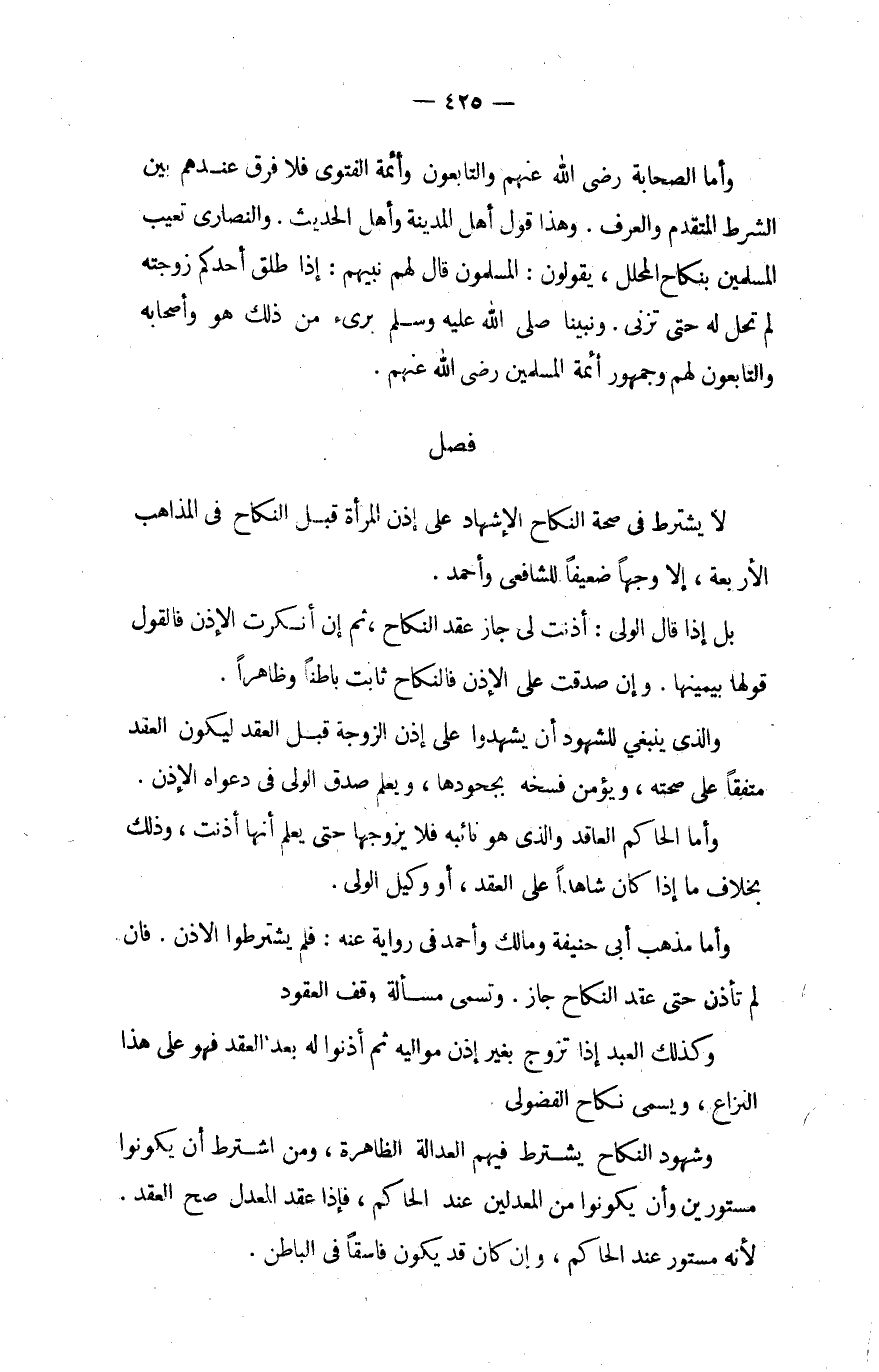 — ٤٢٥ —
وأما الصحابة رضى الله عنهم والتابعون وأئمة الفتوى فلا فرق عندهم بين
الشرط المتقدم والعرف . وهذا قول أهل المدينة وأهل الحديث . والنصارى تعيب
المسلمين بنكاح المحلل ، يقولون : المسلمون قال لهم نبيهم : إذا طلق أحدكم زوجته
لم تحل له حتى تزنى . ونبينا صلى الله عليه وسلم برىء من ذلك هو وأصحابه
والتابعون لهم وجمهور أئمة المسلمين رضى الله عنهم .
فصل
لا يشترط فى صحة النكاح الإشهاد على إذن المرأة قبل النكاح فى المذاهب
الأربعة ، إلا وجهاً ضعيفاً للشافعى وأحمد .
بل إذا قال الولى : أذنت لى جاز عقد النكاح ، ثم إن أنكرت الإذن فالقول
قولها بيمينها . وإن صدقت على الإذن فالنكاح ثابت باطناً وظاهراً .
والذى ينبغي للشهود أن يشهدوا على إذن الزوجة قبل العقد ليكون العقد
متفقاً على صحته ، ويؤمن فسخه بجحودها ، ويعلم صدق الولى فى دعواه الإذن .
وأما الحاكم العاقد والذى هو نائبه فلا يزوجها حتى يعلم أنها أذنت ، وذلك
بخلاف ما إذا كان شاهداً على العقد ، أو وكيل الولى .
وأما مذهب أبى حنيفة ومالك وأحمد فى رواية عنه : فلم يشترطوا الاذن . فان
لم تأذن حتى عقد النكاح جاز . وتسمى مسألة وقف العقود
وكذلك العبد إذا تزوج بغير إذن مواليه ثم أذنوا له بعد العقد فهو على هذا
النزاع ، ويسمى نكاح الفضولى
وشهود النكاح يشترط فيهم العدالة الظاهرة ، ومن اشترط أن يكونوا
مستورين وأن يكونوا من المعدلين عند الحاكم ، فإذا عقد المعدل صح العقد .
لأنه مستور عند الحاكم ، وإن كان قد يكون فاسقاً فى الباطن .